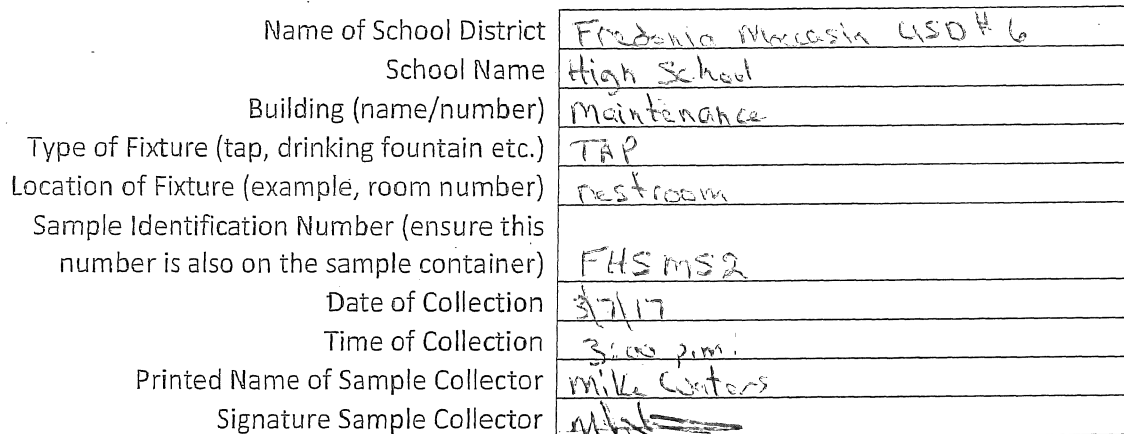 Name of School District Fredonia Moccasin USD # 6
School Name High School
Building (name/number) Maintenance
Type of Fixture (tap, drinking fountain etc.) TAP
Location of Fixture (example, room number) restroom
Sample Identification Number (ensure this
number is also on the sample container) FHSMS2
Date of Collection 3/7/17
Time of Collection 3:00 p.m.
Printed Name of Sample Collector Mike Waters
Signature Sample Collector